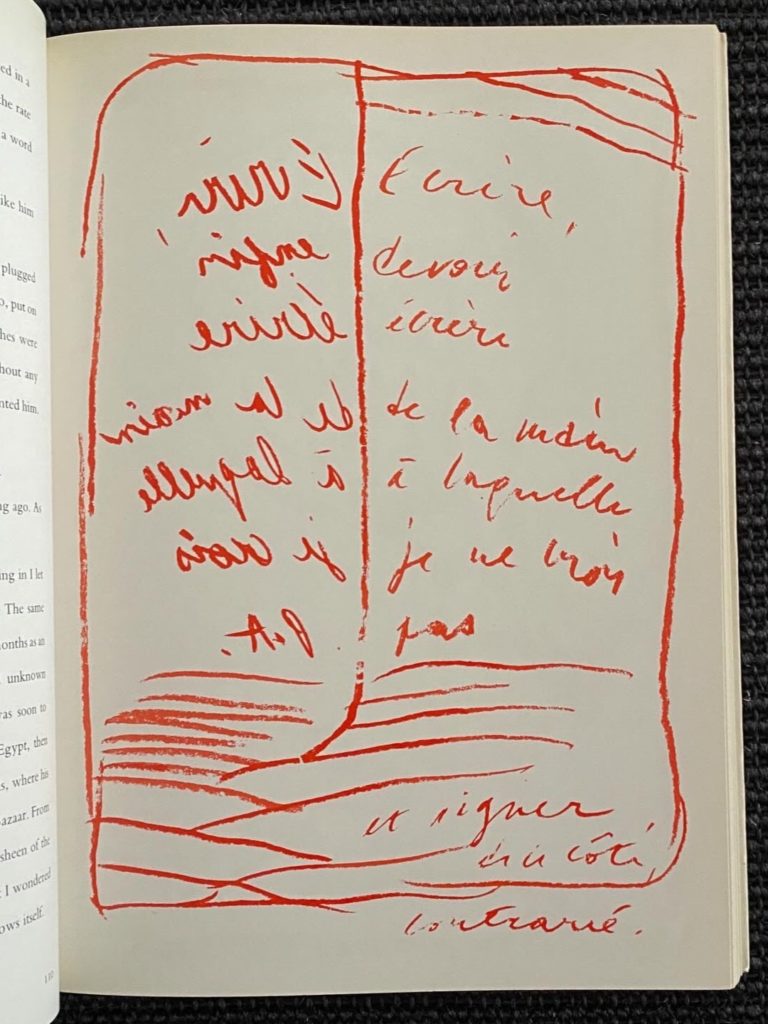 ed in a
the rate
a word
ike him
plugged
o, put on
hes were
hout any
nted him.
ng ago. As
ing in I let
The same
onths as an
unknown
was soon to
Egypt, then
s, where his
azaar. From
sheen of the
I wondered
ows itself.
110
Écrire,
enfin
écrire
de la main
à laquelle
je crois
P.A.
Écrire,
devoir
écrire
de la main
à laquelle
je ne crois
pas
et signer
côté
contrarié.